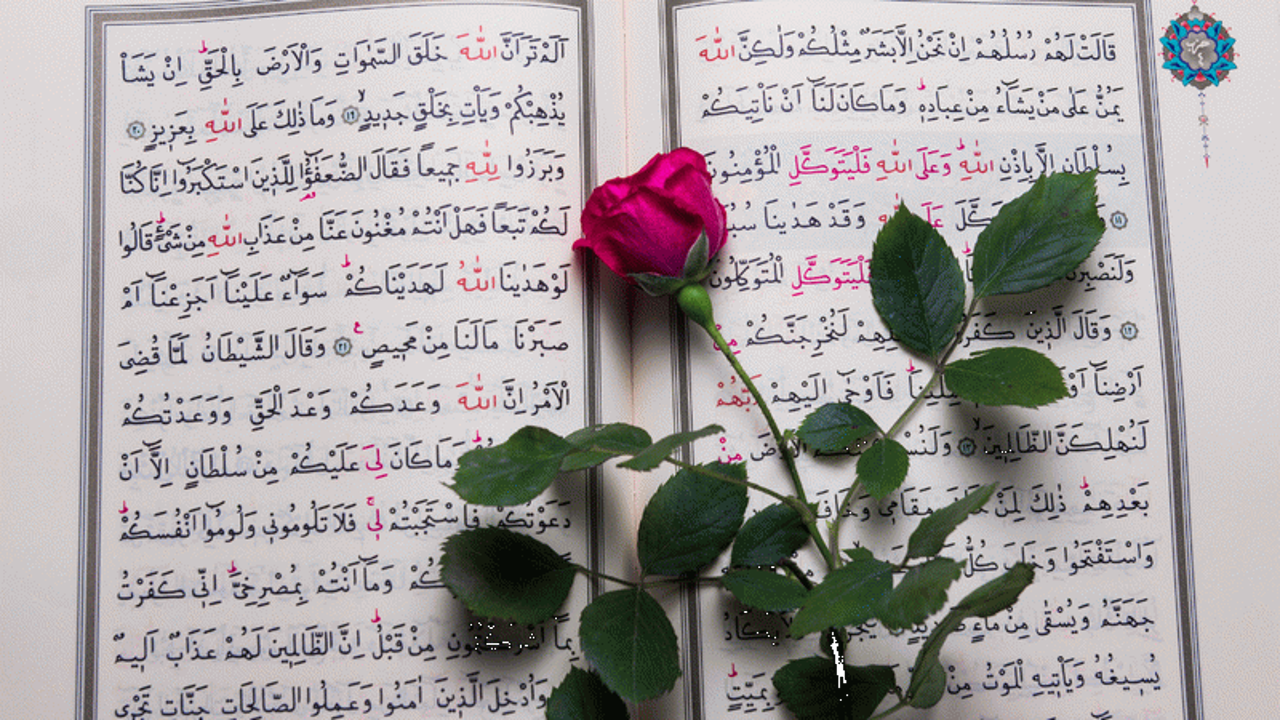 قَالَتْ لَهُمْ رُسُلُهُمْ اِنْ نَحْنُ اِلَّا بَشَرٌ مِثْلُكُمْ وَلٰكِنَّ اللّٰهَ
يَمُنُّ عَلٰى مَنْ يَشَٓاءُ مِنْ عِبَادِه۪ۜ وَمَا كَانَ لَنَٓا اَنْ نَأْتِيَكُمْ
بِسُلْطَانٍ اِلَّا بِاِذْنِ اللّٰهِۜ وَعَلَى اللّٰهِ فَلْيَتَوَكَّلِ الْمُؤْمِنُونَ
﴿١١﴾ وَقَدْ هَدٰينَا
الْمُتَوَكِّلُونَ
﴿١٢﴾ وَقَالَ الَّذ۪ينَ لَنُخْرِجَنَّكُمْ مِنْ
اَرْضِنَٓا فَاَوْحٰٓى اِلَيْهِمْ رَبُّهُمْ
لَنُهْلِكَنَّ الظَّالِم۪ينَۙ ﴿١٣﴾ مِنْ
بَعْدِهِمْۜ ذٰلِكَ لِمَنْ مَقَام۪ي
وَاسْتَفْتَحُوا وَخَابَ كُلُّ
جَهَنَّمُ وَيُسْقٰى مِنْ مَٓاءٍ
يُس۪يغُهُ وَيَأْت۪يهِ الْمَوْتُ مِنْ بِمَيِّتٍۜ
اَلَمْ تَرَ اَنَّ اللّٰهَ خَلَقَ السَّمٰوَاتِ وَالْاَرْضَ بِالْحَقِّۜ اِنْ يَشَأْ
يُذْهِبْكُمْ وَيَأْتِ بِخَلْقٍ جَد۪يدٍۙ ﴿١٩﴾ وَمَا ذٰلِكَ عَلَى اللّٰهِ بِعَز۪يزٍ ﴿٢٠﴾
وَبَرَزُوا لِلّٰهِ جَم۪يعاً فَقَالَ الضُّعَفٰٓؤُ۬ا لِلَّذ۪ينَ اسْتَكْبَرُٓوا اِنَّا كُنَّا
لَكُمْ تَبَعاً فَهَلْ اَنْتُمْ مُغْنُونَ عَنَّا مِنْ عَذَابِ اللّٰهِ مِنْ شَيْءٍۜ قَالُوا
لَوْ هَدٰينَا اللّٰهُ لَهَدَيْنَاكُمْۜ سَوَٓاءٌ عَلَيْنَٓا اَجَزِعْنَٓا اَمْ
صَبَرْنَا مَا لَنَا مِنْ مَح۪يصٍ۟ ﴿٢١﴾ وَقَالَ الشَّيْطَانُ لَمَّا قُضِيَ
الْاَمْرُ اِنَّ اللّٰهَ وَعَدَكُمْ وَعْدَ الْحَقِّ وَوَعَدْتُكُمْ
مَا كَانَ لِيَ عَلَيْكُمْ مِنْ سُلْطَانٍ اِلَّٓا اَنْ
دَعَوْتُكُمْ فَاسْتَجَبْتُمْ ل۪يۚ فَلَا تَلُومُون۪ي وَلُومُٓوا اَنْفُسَكُمْۜ
وَمَٓا اَنْتُمْ بِمُصْرِخِيَّۜ اِنّ۪ي كَفَرْتُ
بِمَٓا مِنْ قَبْلُۜ اِنَّ الظَّالِم۪ينَ لَهُمْ عَذَابٌ اَل۪يمٌ
وَاُدْخِلَ الَّذ۪ينَ اٰمَنُوا وَعَمِلُوا الصَّالِحَاتِ جَنَّاتٍ تَجْر۪ي